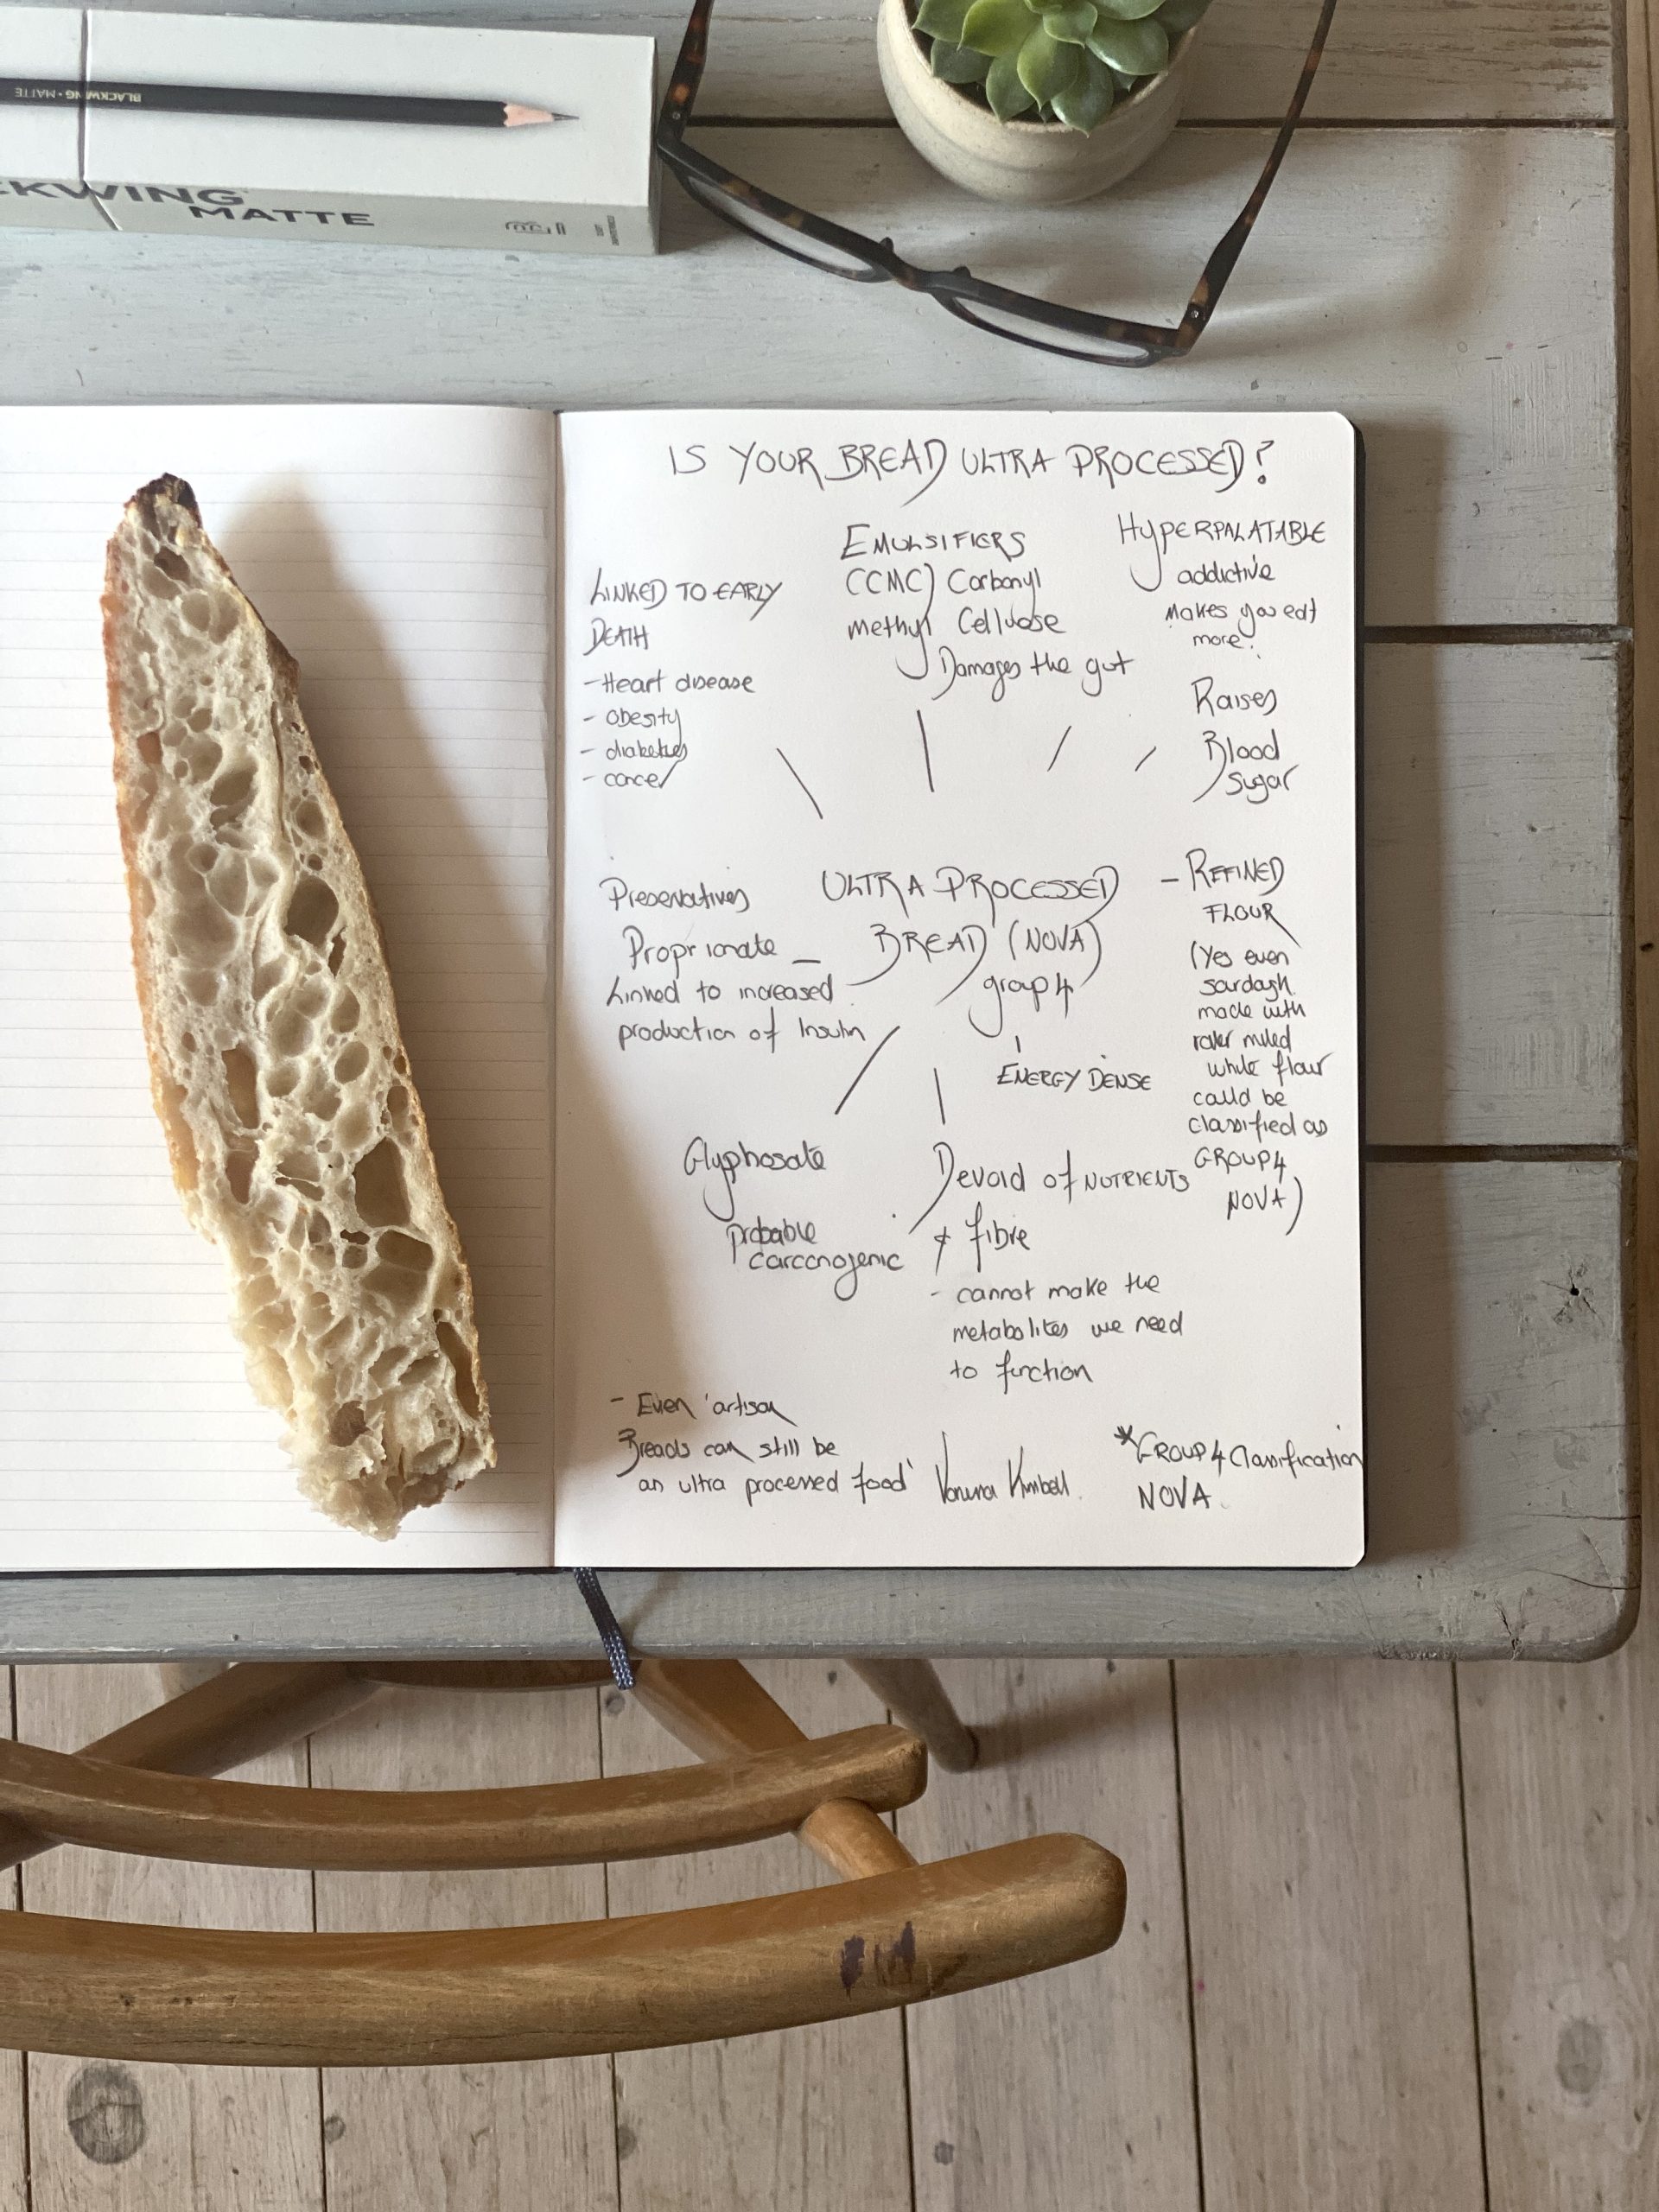 BLACKWING • MATTE
CKWING
MATTE
IS YOUR BREAD ULTRA PROCESSED?
LINKED TO EARLY
DEATH
- Heart disease
- obesity
- diabetes
- cancer
EMULSIFIERS
(CMC) Carbonyl
methyl Cellulose
Damages the gut
HYPERPALATABLE
addictive
makes you eat
more.
Raises
Blood
sugar
Preservatives
Proprionate
Linked to increased
production of Insulin
ULTRA PROCESSED
BREAD (NOVA)
group 4
ENERGY DENSE
- REFINED
FLOUR
(Yes even
sourdough
made with
roller milled
white flour
could be
classified as
GROUP 4
NOVA)
Glyphosate
probable
carconogenic
Devoid of NUTRIENTS
& fibre
- cannot make the
metabolites we need
to function
- Even 'artisan
Breads can still be
an ultra processed food' Vanessa Kimbell
*GROUP 4 Classification
NOVA.